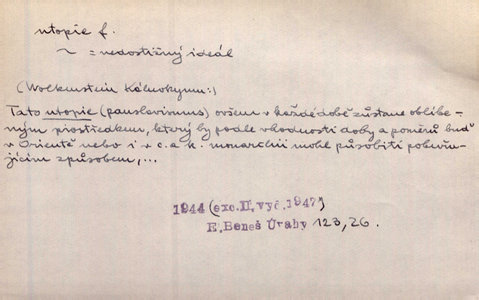 utopie f.
~ = nedostižný ideál
(Wolkenstein Kálnokymu:)
Tato utopie (panslavismus) ovšem v každé době zůstane oblíbe-
ným prostředkem, který by podle vhodnosti doby a poměrů buď
v Orientě nebo i v c. a k. monarchii mohl působiti pobuřu-
jícím způsobem, ...
1944 (exc.II, vyč.1947)
E. Beneš Úvahy 123, 26.